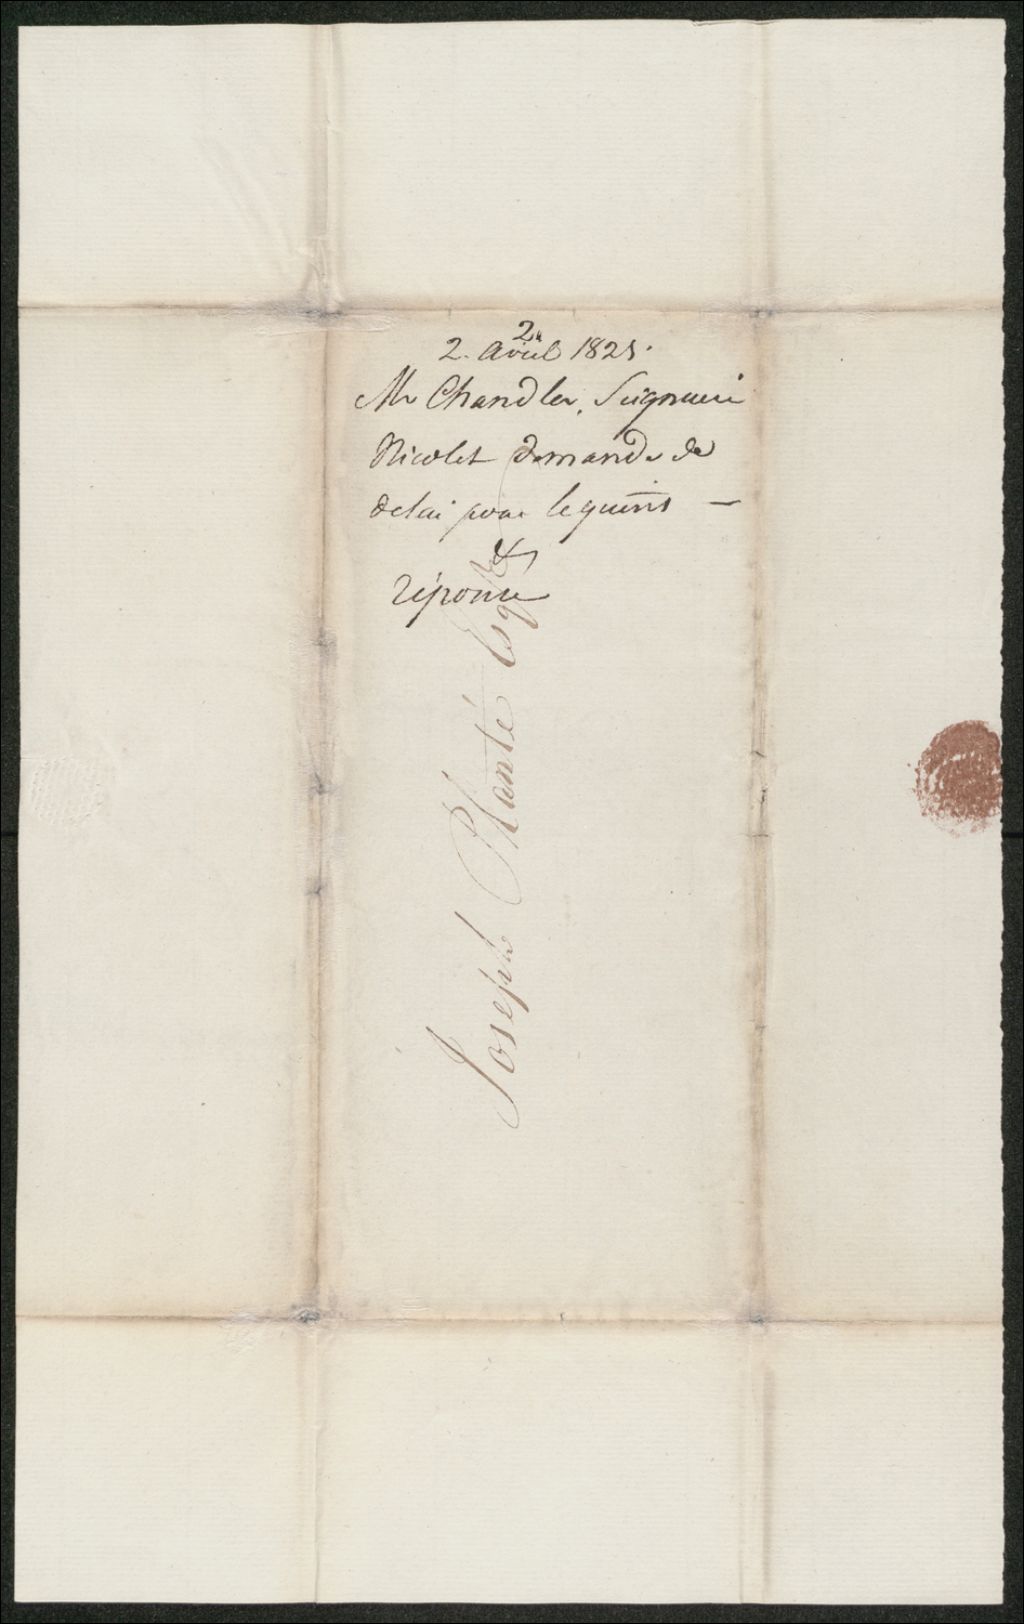 2. Avril 1825.
Mr Chandler, Seigneurie
Nicolet demande de
delai pour le quint —
&
réponse
Joseph Planté Esqre